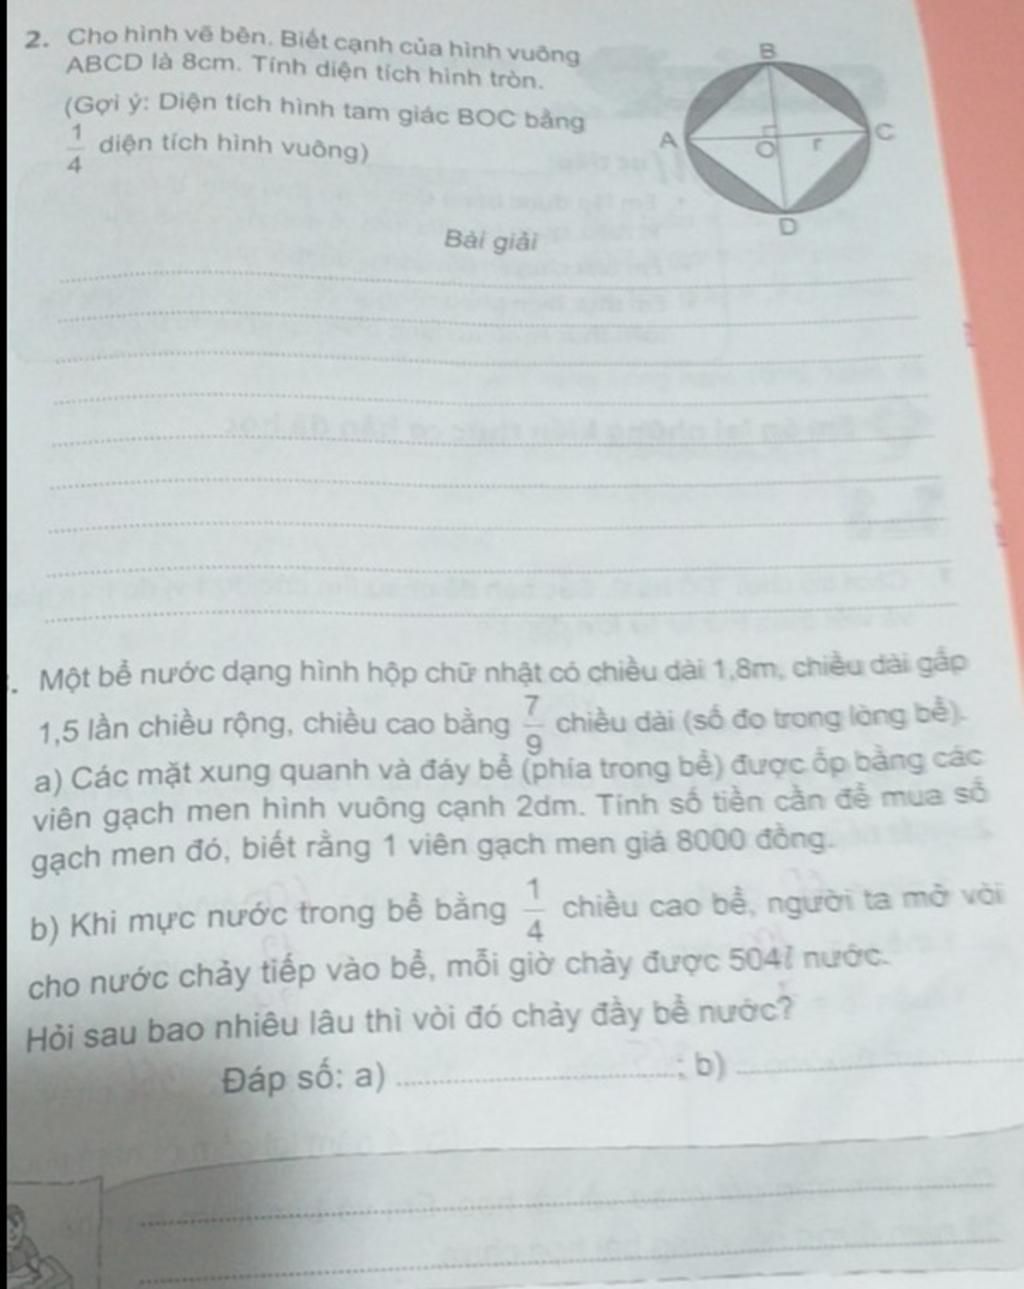 2. Cho hình vẽ bên. Biết cạnh của hình vuông
ABCD là 8cm. Tính diện tích hình tròn.
(Gợi ý: Diện tích hình tam giác BOC bằng
1/4 diện tích hình vuông)
B
A
C
O
r
D
Bài giải
. Một bể nước dạng hình hộp chữ nhật có chiều dài 1,8m, chiều dài gấp
1,5 lần chiều rộng, chiều cao bằng 7/9 chiều dài (số đo trong lòng bể).
a) Các mặt xung quanh và đáy bể (phía trong bể) được ốp bằng các
viên gạch men hình vuông cạnh 2dm. Tính số tiền cần để mua số
gạch men đó, biết rằng 1 viên gạch men giá 8000 đồng.
b) Khi mực nước trong bể bằng 1/4 chiều cao bể, người ta mở vòi
cho nước chảy tiếp vào bể, mỗi giờ chảy được 504l nước.
Hỏi sau bao nhiêu lâu thì vòi đó chảy đầy bể nước?
Đáp số: a) ........................ ; b) ........................